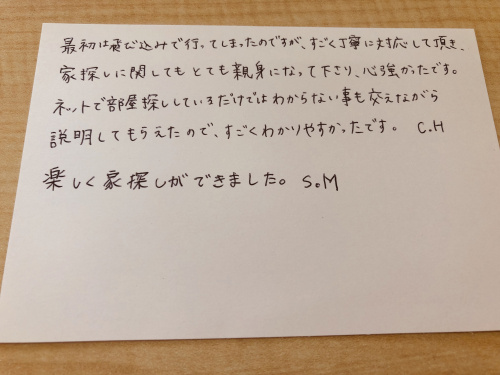 最初は飛び込みで行ってしまったのですが、すごく丁寧に対応して頂き、
家探しに関してもとても親身になって下さり、心強かったです。
ネットで部屋探ししているだけではわからない事も交えながら
説明してもらえたので、すごくわかりやすかったです。 C.H
楽しく家探しができました。 S.M